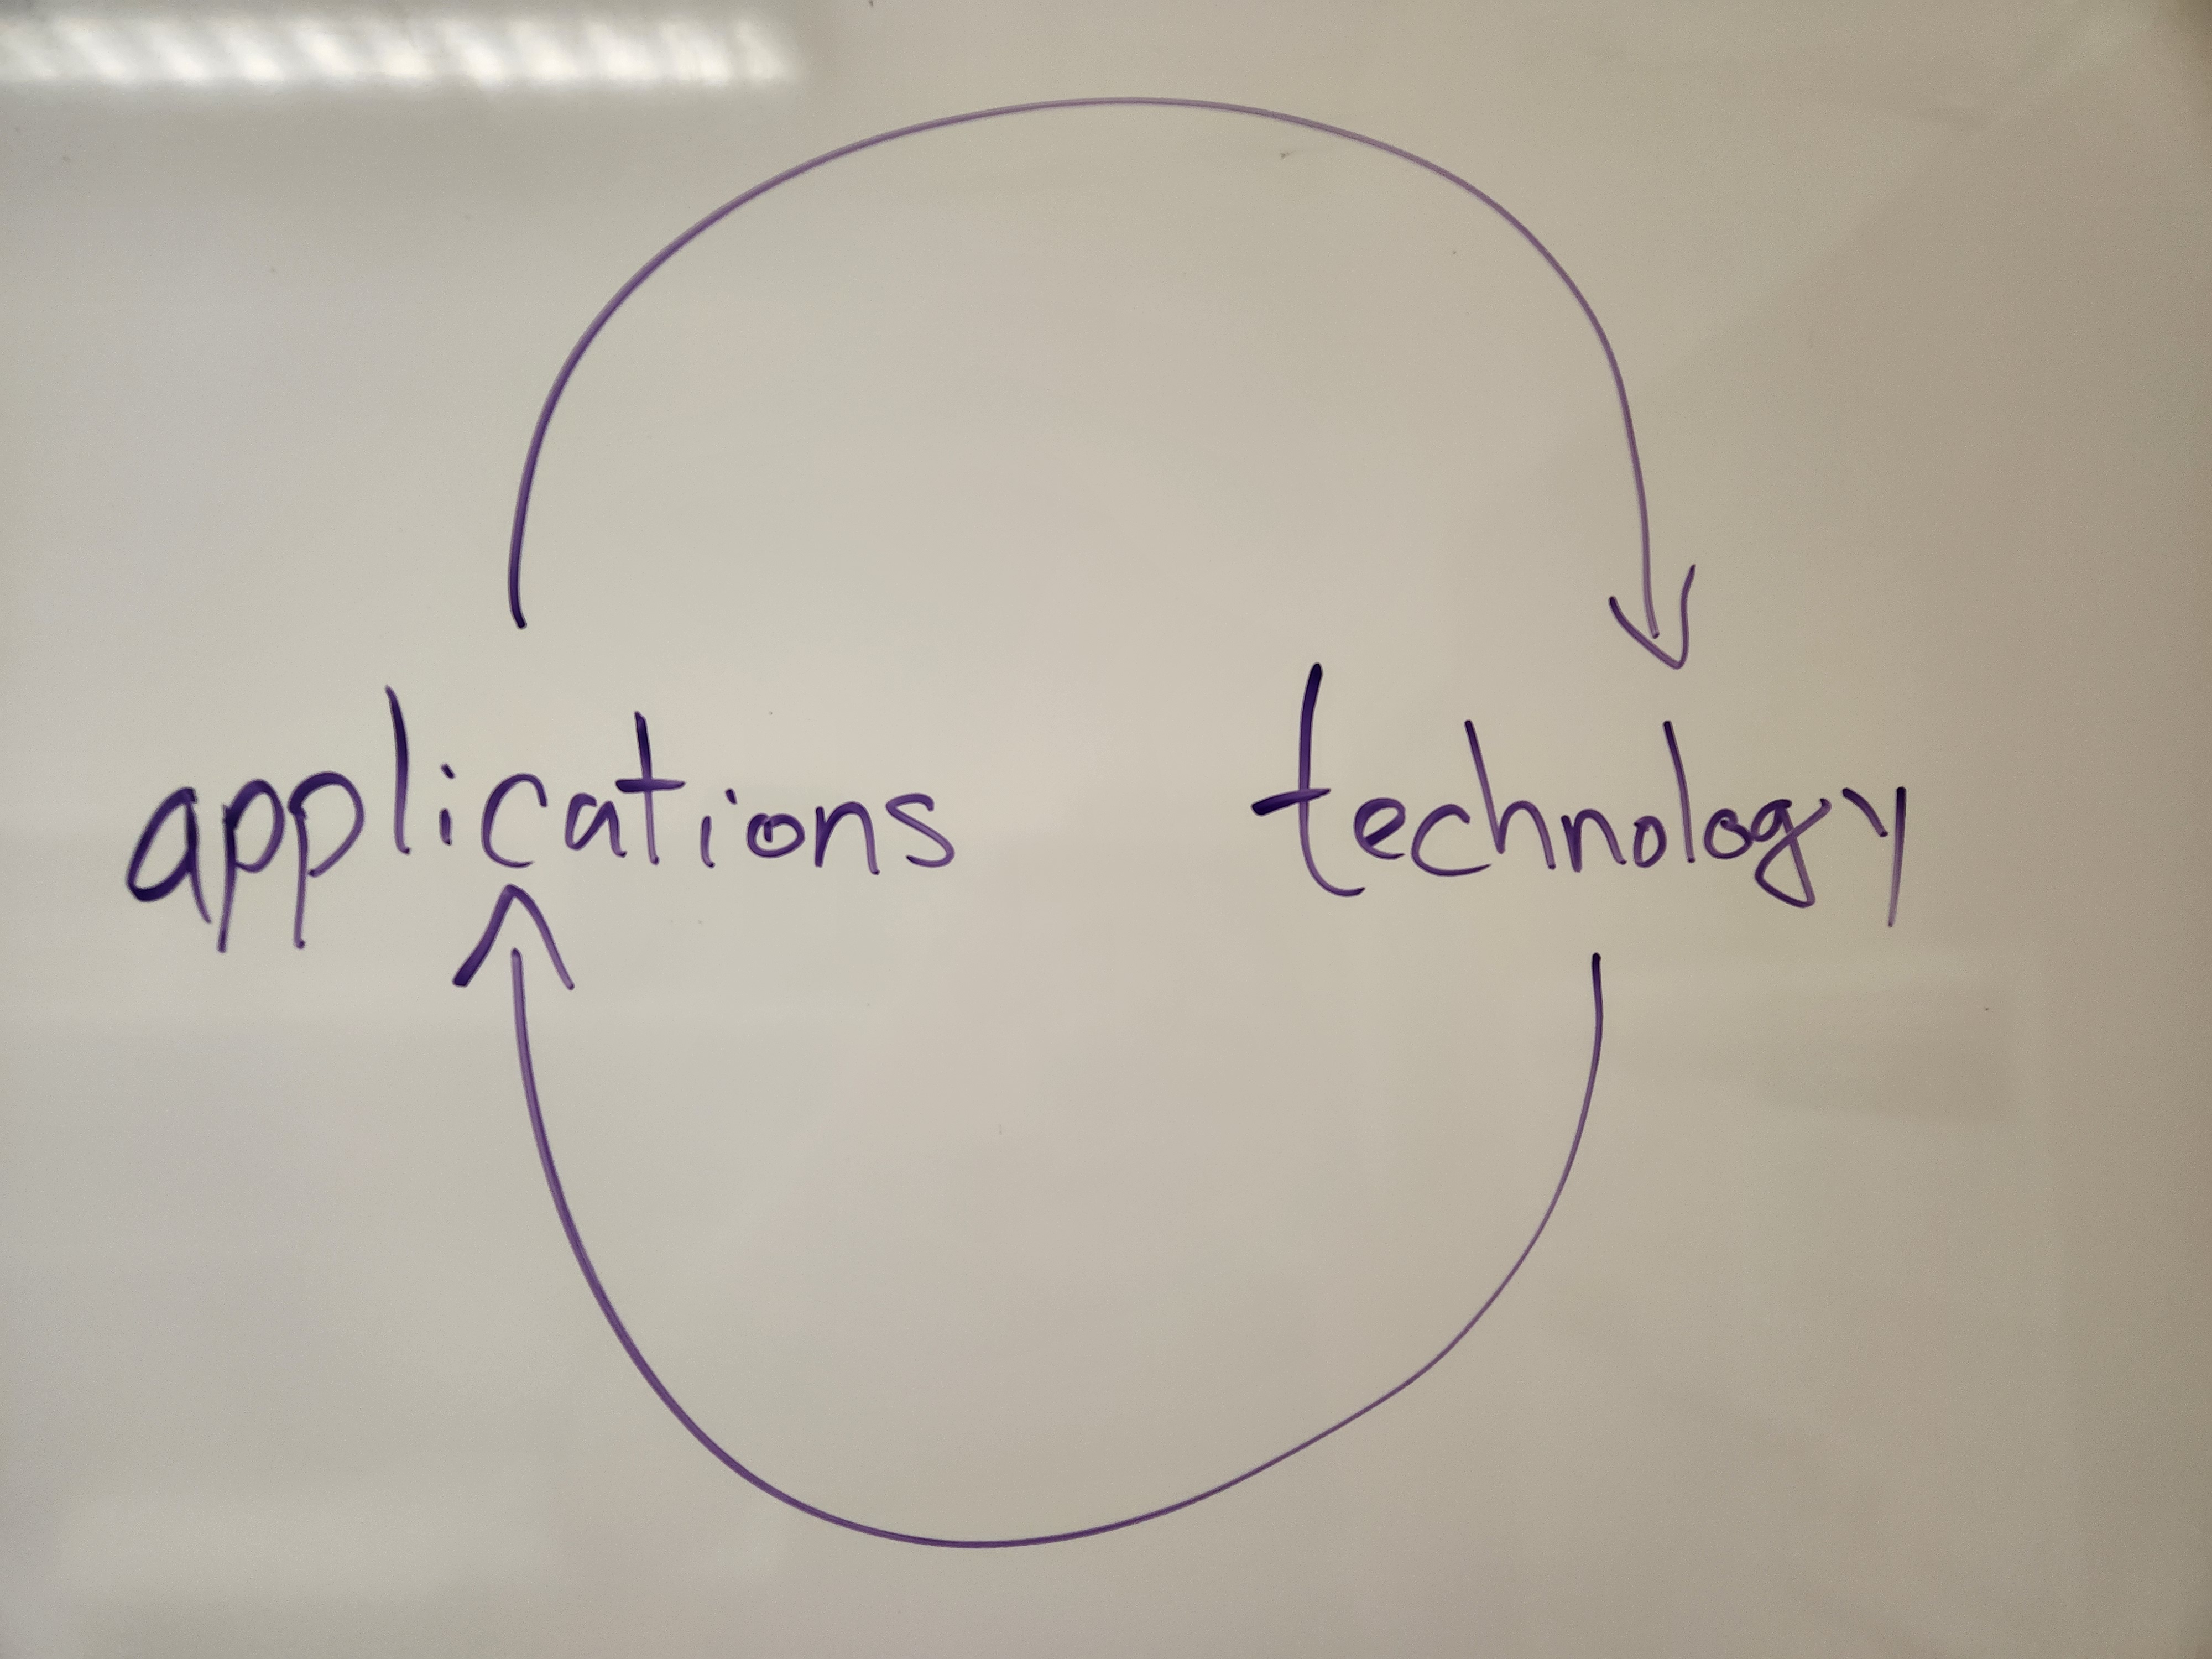 applications technology